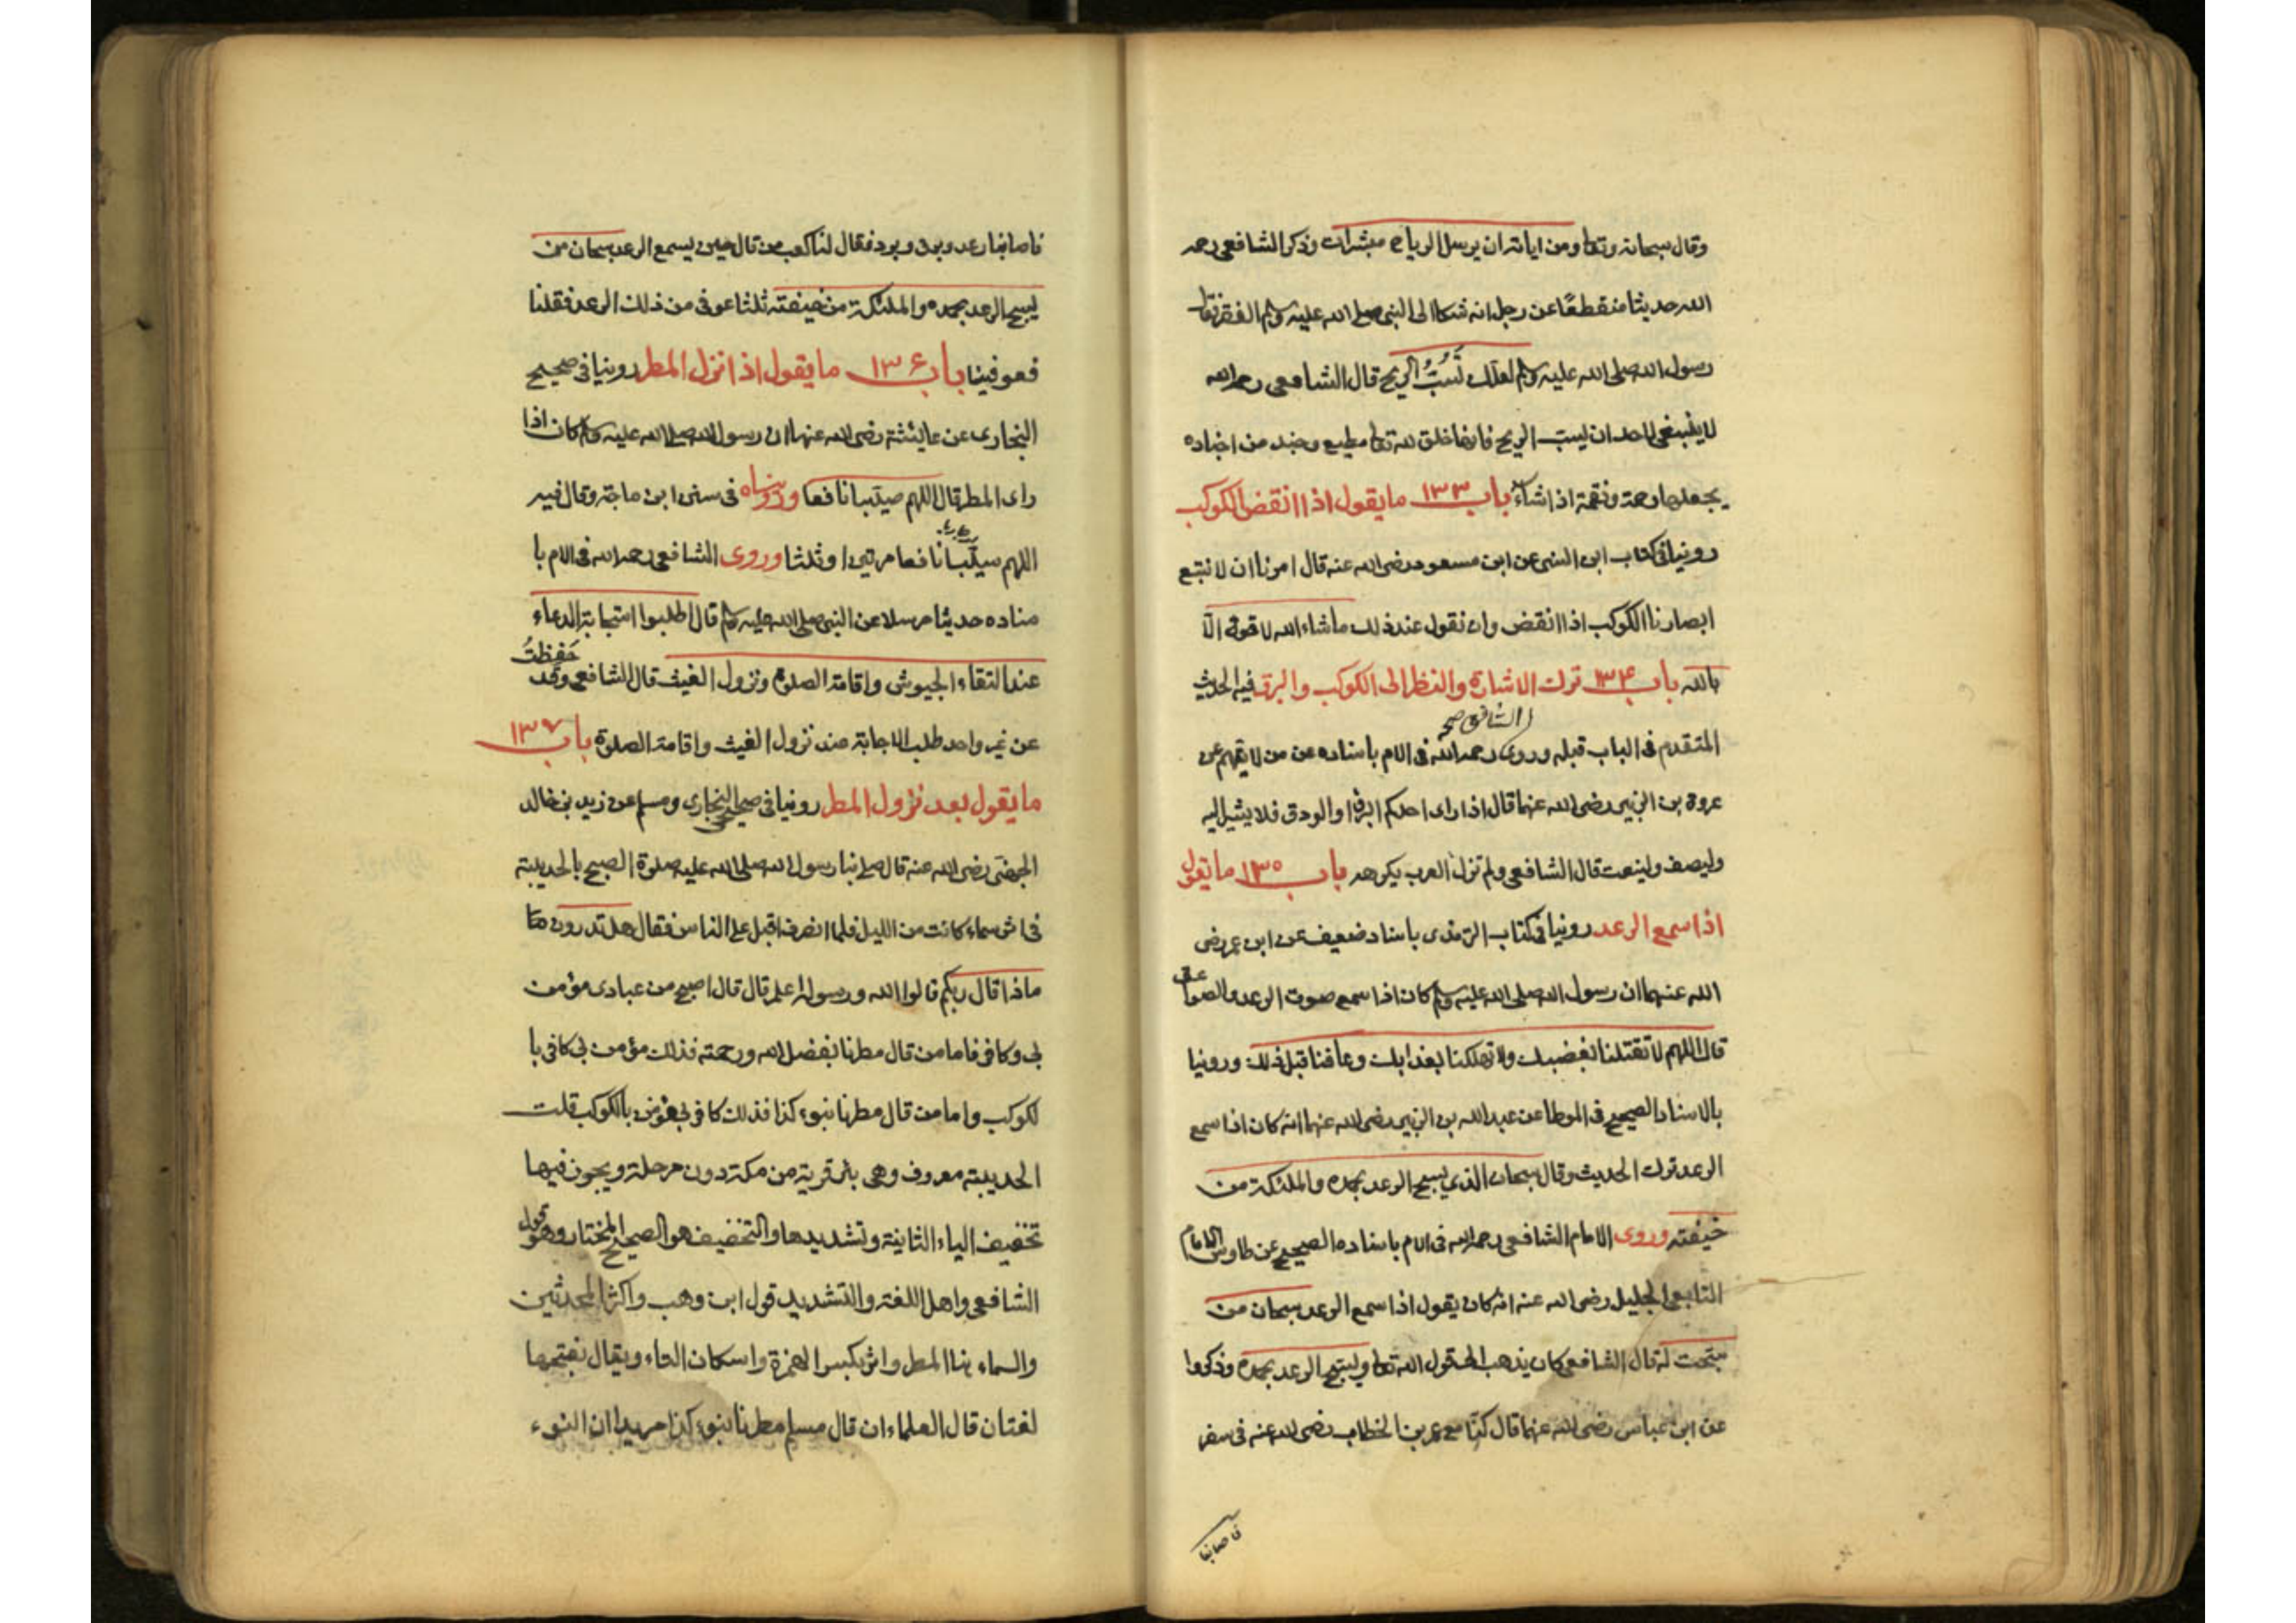 وقال سبحانه وتعا ومن اياته ان يرسل الرياح مبشرات وذكر الشافعي رحمه
الله حديثا منقطعًا عن رجل انه شكا الى النبي صلى الله عليه وسلم الفقر فقال
رسول الله صلى الله عليه وسلم لعلك تَسُبُّ الريح قال الشافعي رحمه الله
لا ينبغي لاحد ان يسب الريح فانها خلق لله تعا مطيع وجند من اجناده
يجعلها رحمة ونقمة اذا شاء باب ١٣٣ ما يقول اذا انقض الكوكب
روينا في كتاب ابن السني عن ابن مسعود رضي الله عنه قال امرنا ان لا نتبع
ابصارنا الكوكب اذا انقض وان نقول عند ذلك ماشاء الله لا قوة الا
بالله باب ١٣۴ ترك الاشارة والنظر الى الكوكب والبرق فيه الحديث
المتقدم في الباب قبله وروى الشافعي صح رحمه الله في الام باسناده عن من لا يتهم عن
عروة بن الزبير رضي الله عنهما قال اذا راى احدكم البرق او الودق فلا يشير اليه
وليصف ولينعت قال الشافعي ولم تزل العرب يكرهه باب ١٣٥ ما يقول
اذا سمع الرعد روينا في كتاب الترمذى باسناد ضعيف عن ابن عمر رضي
الله عنهما ان رسول الله صلى الله عليه وسلم كان اذا سمع صوت الرعد والصواعق
قال اللهم لا تقتلنا بغضبك ولا تهلكنا بعذابك وعافنا قبل ذلك وروينا
بالاسناد الصحيح في الموطا عن عبد الله بن الزبير رضي الله عنهما انه كان اذا سمع
الرعد ترك الحديث وقال سبحان الذي يسبح الرعد بحمده والملئكة من
خيفته وروى الامام الشافعي رحمه الله في الام باسناده الصحيح عن طاوس الامام
التابعي الجليل رضي الله عنه انه كان يقول اذا سمع الرعد سبحان من
سبحت له قال الشافعي كان يذهب الى قول الله تعا ويسبح الرعد بحمده وذكروا
عن ابن عباس رضي الله عنهما قال كنا مع عمر بن الخطاب رضي الله عنه في سفر
فاصابنا
فاصابنا رعد وبرق وبرد فقال لنا كعب من قال حين يسمع الرعد سبحان من
يسبح الرعد بحمده والملئكة من خيفته ثلثا عوفي من ذلك الرعد فقلنا
فعوفينا باب ١٣۶ ما يقول اذا نزل المطر روينا في صحيح
البخارى عن عايشة رضي الله عنها ان رسول الله صلى الله عليه وسلم كان اذا
راى المطر قال اللهم صيّبا نافعا ورويناه في سنن ابن ماجة وقال فيه
اللهم سيّبا نافعا مرتين او ثلثا وروى الشافعي رحمه الله في الام با
سناده حديثا مرسلا عن النبي صلى الله عليه وسلم قال اطلبوا استجابة الدعاء
عند التقاء الجيوش واقامة الصلوة ونزول الغيث قال الشافعي وقد حَفِظتُ
عن غير واحد طلب الاجابة عند نزول الغيث واقامة الصلوة باب ١٣٧
ما يقول بعد نزول المطر روينا في صحيحي البخارى ومسلم عن زيد بن خالد
الجهني رضي الله عنه قال صلى بنا رسول الله صلى الله عليه صلوة الصبح بالحديبية
في اثر سماء كانت من الليل فلما انصرف اقبل على الناس فقال هل تدرون
ماذا قال ربكم قالوا الله ورسوله اعلم قال قال اصبح من عبادى مؤمن
بي وكافر فاما من قال مطرنا بفضل الله ورحمته فذلك مؤمن بي كافر با
لكوكب واما من قال مطرنا بنوء كذا فذلك كافر بي مؤمن بالكوكب قلت
الحديبية معروف وهى بئر قريبة من مكة دون مرحلة ويجوز فيها
تخفيف الياء الثانية وتشديدها والتخفيف هو الصحيح المختار وهو قول
الشافعي واهل اللغة والتشديد قول ابن وهب واكثر المحدثين
والسماء هنا المطر واثر بكسر الهمزة واسكان الثاء ويقال بفتحها
لغتان قال العلماء ان قال مسلم مطرنا بنوء كذا مريدا ان النوء